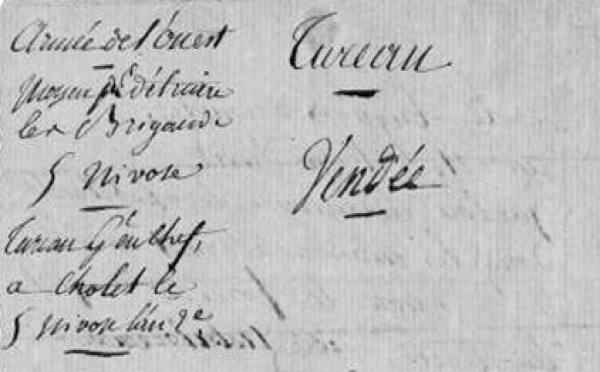 Armée de l'ouest
Moyen de détruire
les Brigands
5 Nivose
Tureau Gén Chef,
a Cholet le
5 Nivose l'an 2e
Tureau
Vendée